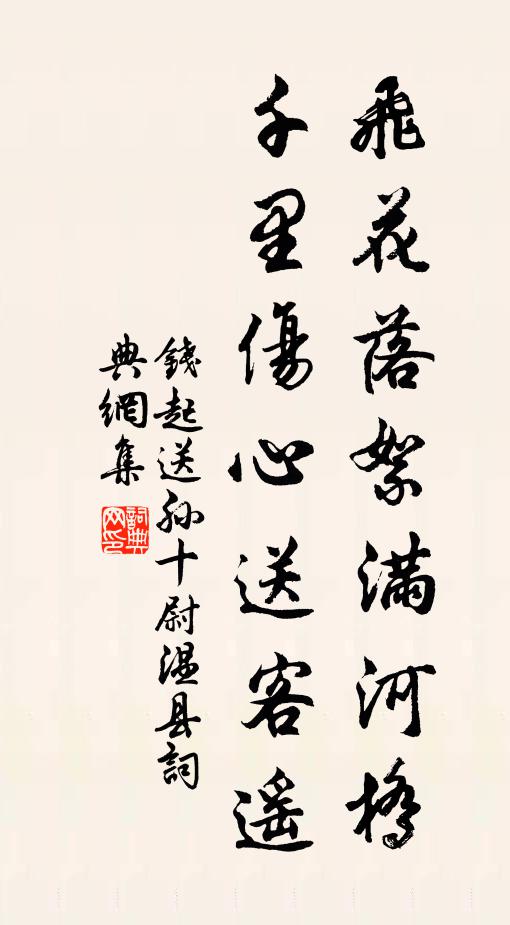 飛花落絮滿河橋
千里傷心送客遥
錢起送孫十尉温县詞
典網集
詞典
网印